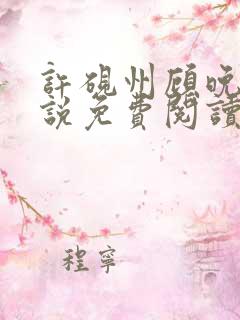 許硯州顧晚
說免費閱讀
程寧